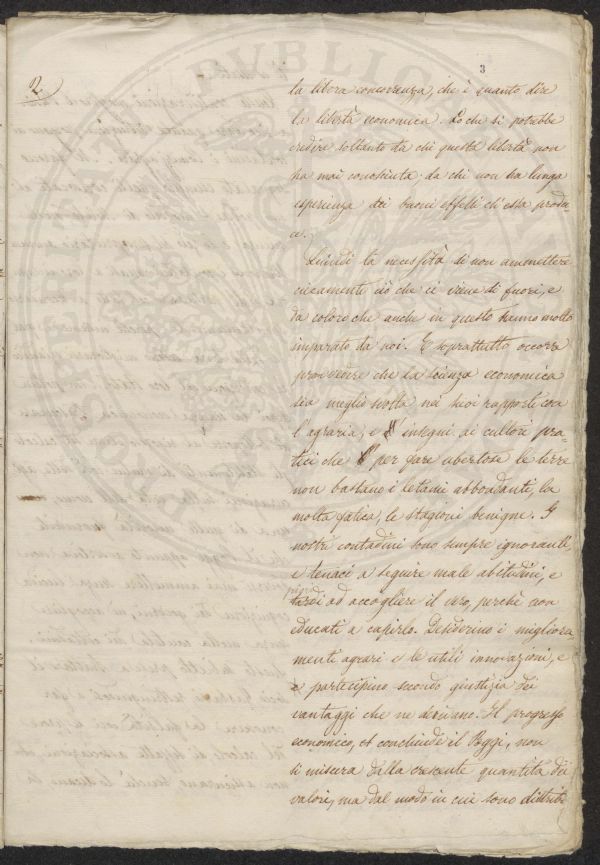 3
2.
la libera concorrenza, che è quanto dire
la libertà economica. Lo che si potrebbe
credire soltanto da chi questa libertà non
ha mai conosciuta; da chi non ha lunga
esperienza dei buoni effetti ch'essa produ-
ce.
Quindi la necessità di non ammettere
ciecamente ciò che ci viene di fuori, e
da coloro che anche in questo hanno molto
imparato da noi. E soprattutto occorre
provvedere che la scienza economica
sia meglio svolta nei suoi rapporti con
l'agraria, e insegni ai cultori pra-
tici che per fare ubertose le terre
non bastano i letami abbondanti, la
molta fatica, le stagioni benigne. I
nostri contadini sono sempre ignoranti,
e tenaci a seguire male abitudini, e
tardi ad accogliere il vero, perchè non
educati a capirlo. Desiderino i migliora-
menti agrari e le utili innovazioni, e
e partecipino secondo giustizia dei
vantaggi che ne derivano. Il progresso
economico, conclude il Poggi, non
si misura dalla crescente quantità dei
valori, ma dal modo in cui sono distribi
PROSPERITATI PUBLICAE